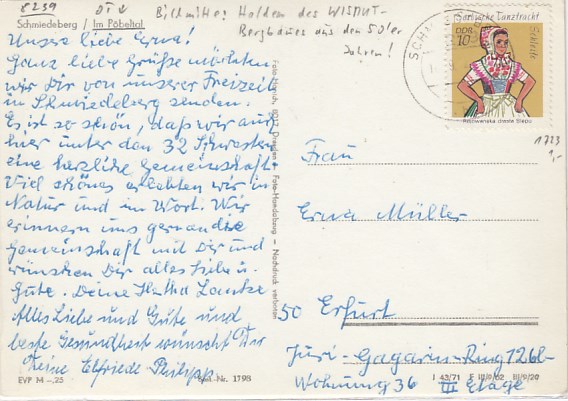 8239 OT↓
Bildmitte: Halden des WISMUT-
Bergbaues aus den 50'er
Jahren!
Schmiedeberg / Im Pöbeltal
Unsre liebe Erna!
Ganz liebe Grüße möchten
wir Dir von unserer Freizeit
in Schmiedeberg senden.
Es ist so schön, daß wir auch
hier unter den 32 Schwestern
eine herzliche Gemeinschaft.
Viel schönes erlebten wir in
Natur und im Wort. Wir
erinnern uns gern an die
Gemeinschaft mit Dir und
wünschen Dir alles Liebe u.
Gute. Deine
Alles Liebe und Gute und
beste Gesundheit wünscht Dir
Deine Elfriede Philipp
EVP M –,25
Best.-Nr. 1798
Dresden • Foto-Handabzug — Nachdruck verboten
Sorbische Tanztracht
DDR
10
Schleife
SCHM
1723
1,-
Frau
Erna Müller
50 Erfurt
Juri-Gagarin-Ring 126b
Wohnung 36 III Etage
I 43/71 F III/9/62 III/9/20